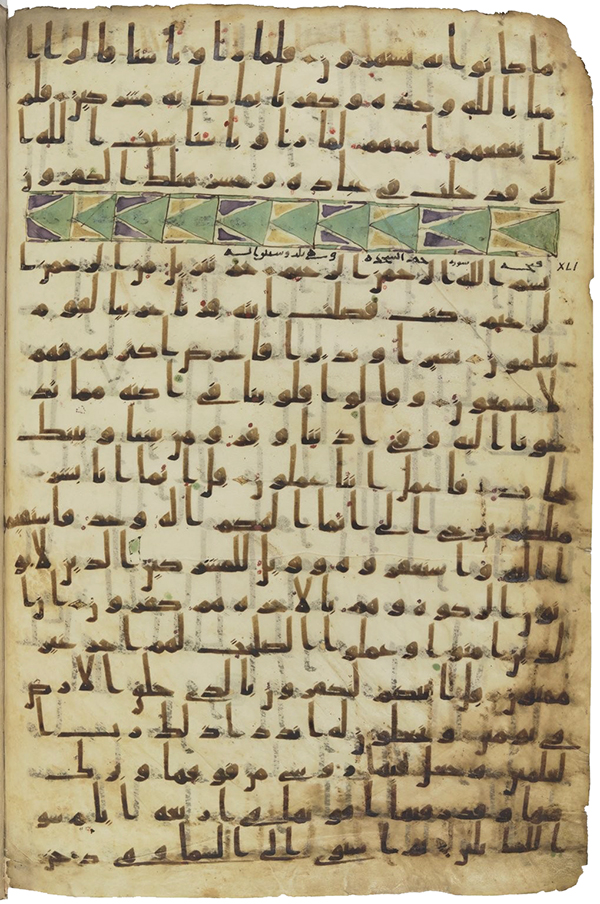 ما كانوا به يستهزون فلما راوا باسنا قالوا ا
منا بالله وحده وكفرنا بما كنا به مشركين فلم
يك ينفعهم ايمنهم لما راوا باسنا سنت الله ا
لتي قد خلت في عباده وخسر هنلك الكفرون
سورة حم السجده XLI
بسم الله الرحمن الرحيم حم تنزيل من الرحمن ا
لرحيم كتب فصلت ايته قرانا عربيا لقوم
يعلمون بشيرا ونذيرا فاعرض اكثرهم فهم
لا يسمعون وقالوا قلوبنا في اكنه مما تد
عونا اليه وفي اذننا وقر ومن بيننا وبينك
حجاب فاعمل اننا عملون قل انما انا بشر
مثلكم يوحى الي انما الهكم اله وحد فاستقيمو
ا اليه واستغفروه وويل للمشركين الذين لا يو
تون الزكوه وهم بالاخره هم كفرون ان ا
لذين امنوا وعملوا الصلحت لهم اجر غير
ممنون قل اينكم لتكفرون بالذي خلق الارض
في يومين وتجعلون له اندادا ذلك رب ا
لعلمين وجعل فيها روسي من فوقها وبرك
فيها وقدر فيها اقوتها في اربعه ايام سو
ا للسايلين ثم استوى الى السما وهي دخن